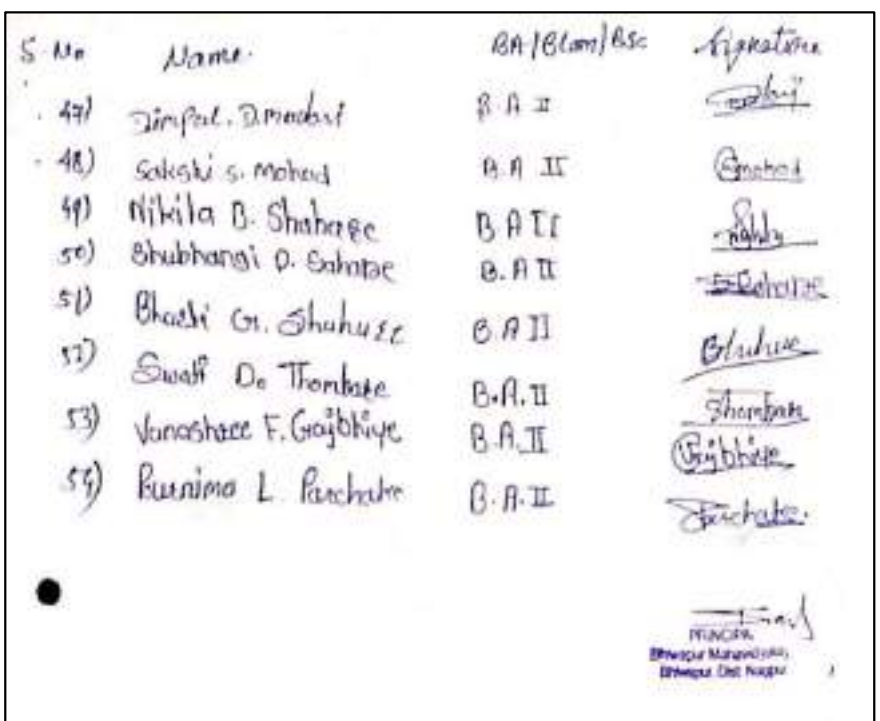 S. No Name. BA/Bcom/BSc Signature
47) Dimpal. D. Madavi B.A II
48) Sakshi S. Mohod B.A II Smohod
49) Nikita B. Shahare B A II
50) Shubhangi D. Sahare B. A II
51) Bharti G. Shuhure B.A II
52) Swati D. Thombare B.A. II Thombare
53) Vanashree F. Gajbhiye B.A. II Gajbhiye
54) Purnima L. Parchake B.A. II Parchake.
PRINCIPAL
Bhiwapur Mahavidyalaya
Bhiwapur Dist. Nagpur